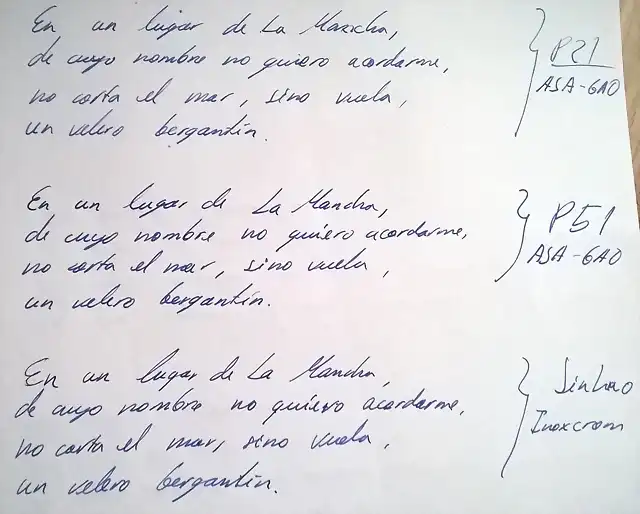 En un lugar de La Mancha,
de cuyo nombre no quiero acordarme,
no corta el mar, sino vuela,
un velero bergantín.
P21
ASA-GAO
En un lugar de La Mancha,
de cuyo nombre no quiero acordarme,
no corta el mar, sino vuela,
un velero bergantín.
P51
ASA-GAO
En un lugar de La Mancha,
de cuyo nombre no quiero acordarme,
no corta el mar, sino vuela,
un velero bergantín.
Jinhao
Inoxcrom